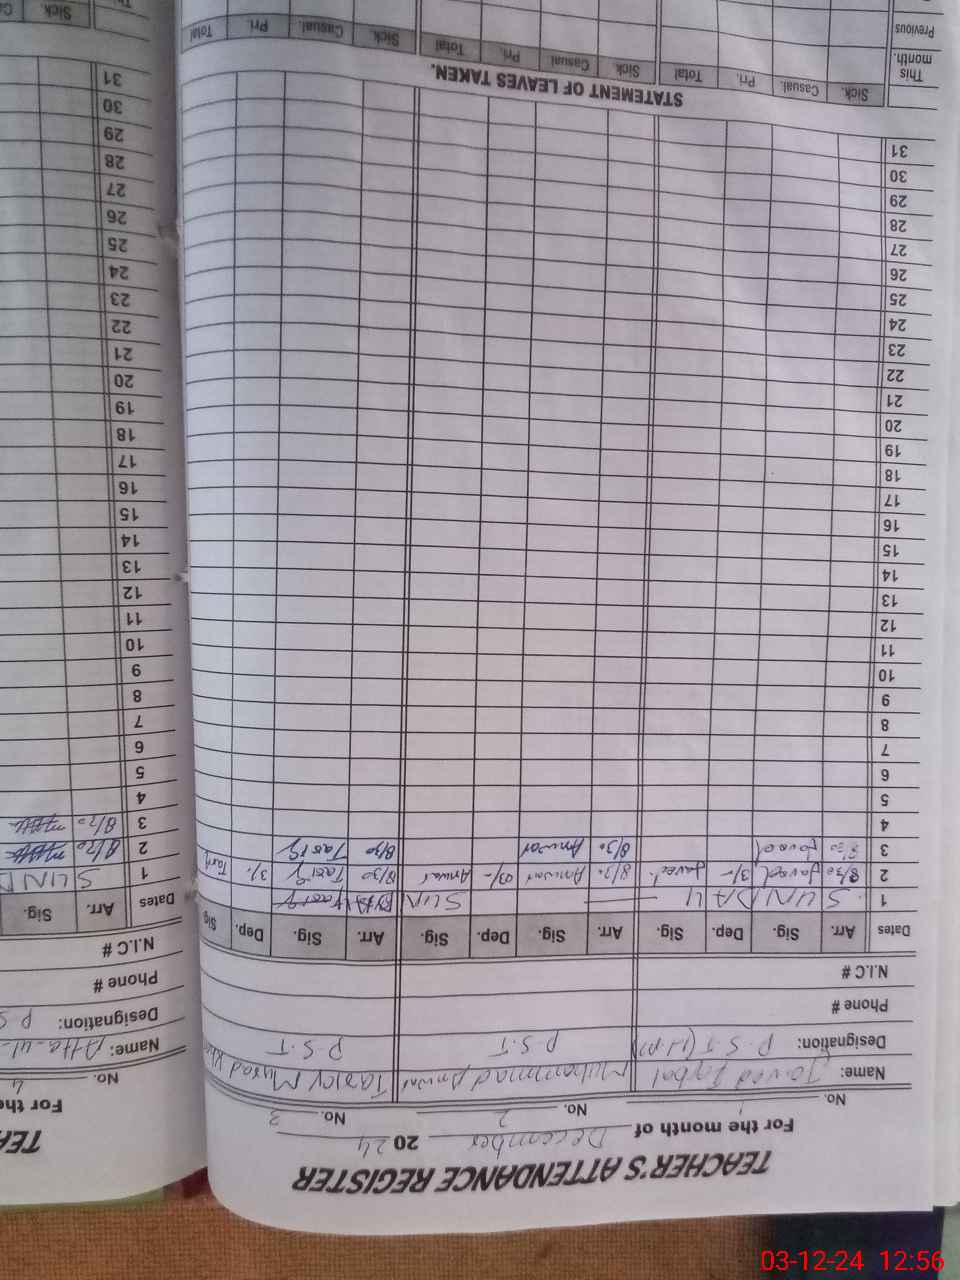 TEACHER'S ATTENDANCE REGISTER
For the month of December 2024
No. 1 No. 2 No. 3
Name: Javed Iqbal Muhammad Anwar Tariq Murad Khan
Designation: P.S.T (H.M) P.S.T P.S.T
Phone #
N.I.C #
Dates Arr. Sig. Dep. Sig. Arr. Sig. Dep. Sig. Arr. Sig. Dep. Sig
1 SUNDAY SUN
2 8/30 Javed 3/- Javed 8/30 Anwar 03/- Anwar 8/30 Tariq 3/- Tariq
3 8/30 Javed 8/30 Anwar 8/30 Tariq
4
5
6
7
8
9
10
11
12
13
14
15
16
17
18
19
20
21
22
23
24
25
26
27
28
29
30
31
STATEMENT OF LEAVES TAKEN.
Sick. Casual. Pri. Total Sick. Casual Pri. Total Sick. Casual. Pri. Total
This month.
Previous
TEA
For the
No. 4
Name: Atta-ul-
Designation: P.S
Phone #
N.I.C #
Dates Arr. Sig.
1 SUND
2 8/30
3 8/30
4
5
6
7
8
9
10
11
12
13
14
15
16
17
18
19
20
21
22
23
24
25
26
27
28
29
30
31
Sick.
03-12-24 12:56